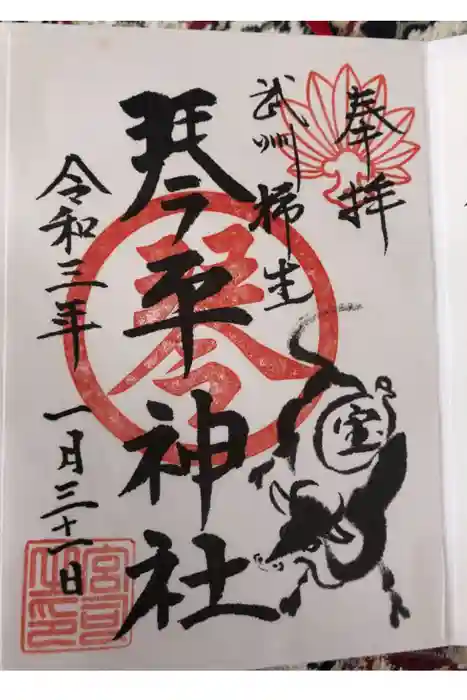 奉拝
武州柿生
琴平神社
令和三年 一月三十一日
琴
宝
宮司之印